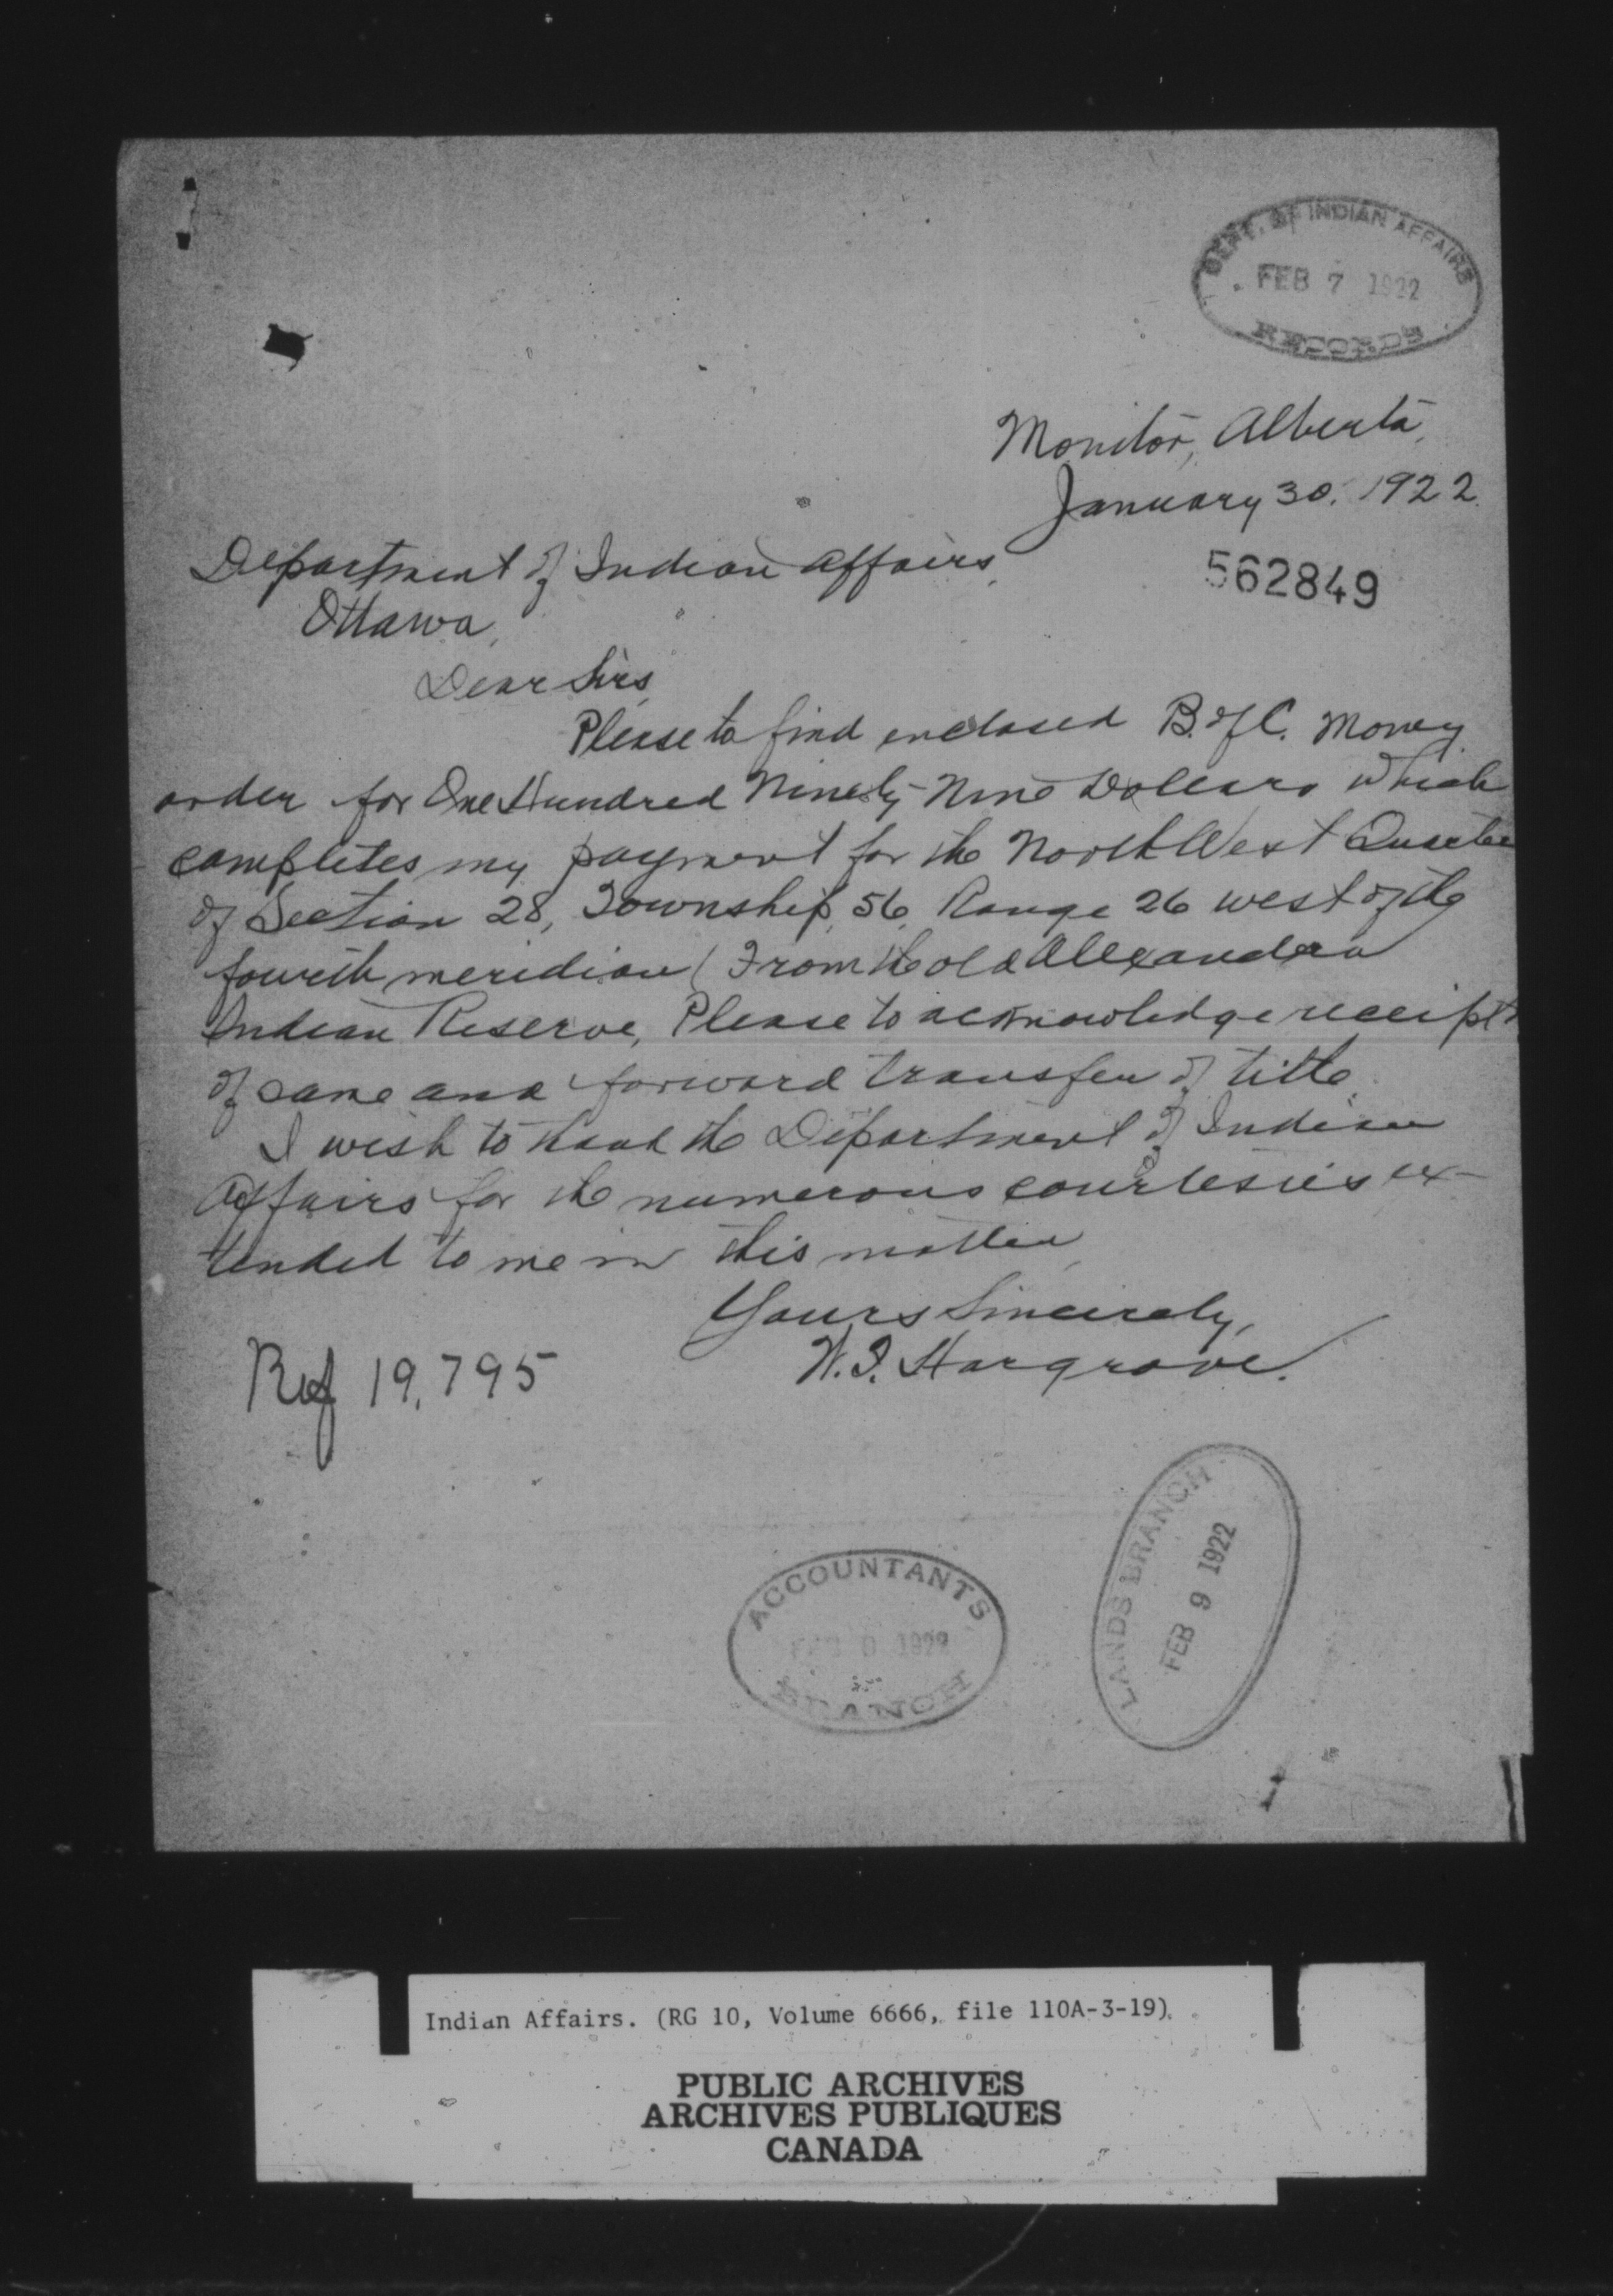 DEPT. OF INDIAN AFFAIRS
FEB 7 1922
RECORDS
Monitor, Alberta,
January 30. 1922.
Department of Indian Affairs,
562849
Ottawa,
Dear Sirs,
Please to find enclosed B. of C. Money
order for One Hundred Ninety-Nine Dollars which
completes my payment for the North West Quarter
of Section 28, Township, 56, Range 26 west of the
fourth meridian ( From the old Alexandra
Indian Reserve, Please to acknowledge receipt
of same and forward transfer of title.
I wish to thank the Department of Indian
Affairs for the numerous courtesies ex-
tended to me in this matter,
Yours Sincerely,
W. I. Hargrove.
Ref 19,795
LANDS BRANCH
FEB 9 1922
ACCOUNTANTS
1922
BRANCH
Indian Affairs. (RG 10, Volume 6666, file 110A-3-19).
PUBLIC ARCHIVES
ARCHIVES PUBLIQUES
CANADA